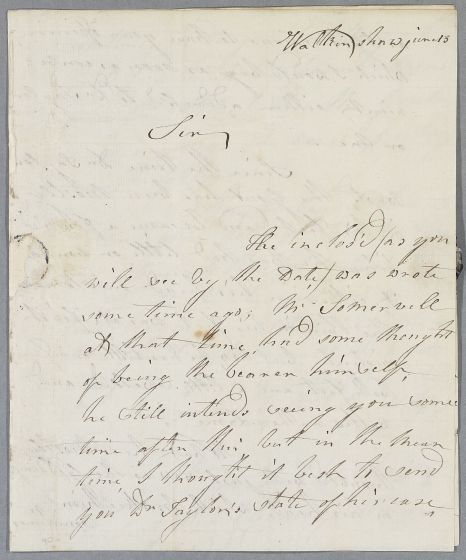 Walkinshaw june 13
Sir
The inclos'd (as you
will see by the Date) was wrote
some time ago; Mr Somervell
at that time had some thought
of being the bearer himself,
he still intends seeing you some
time after this but in the mean
time I thought it best to send
you Dr Taylor's state of his case